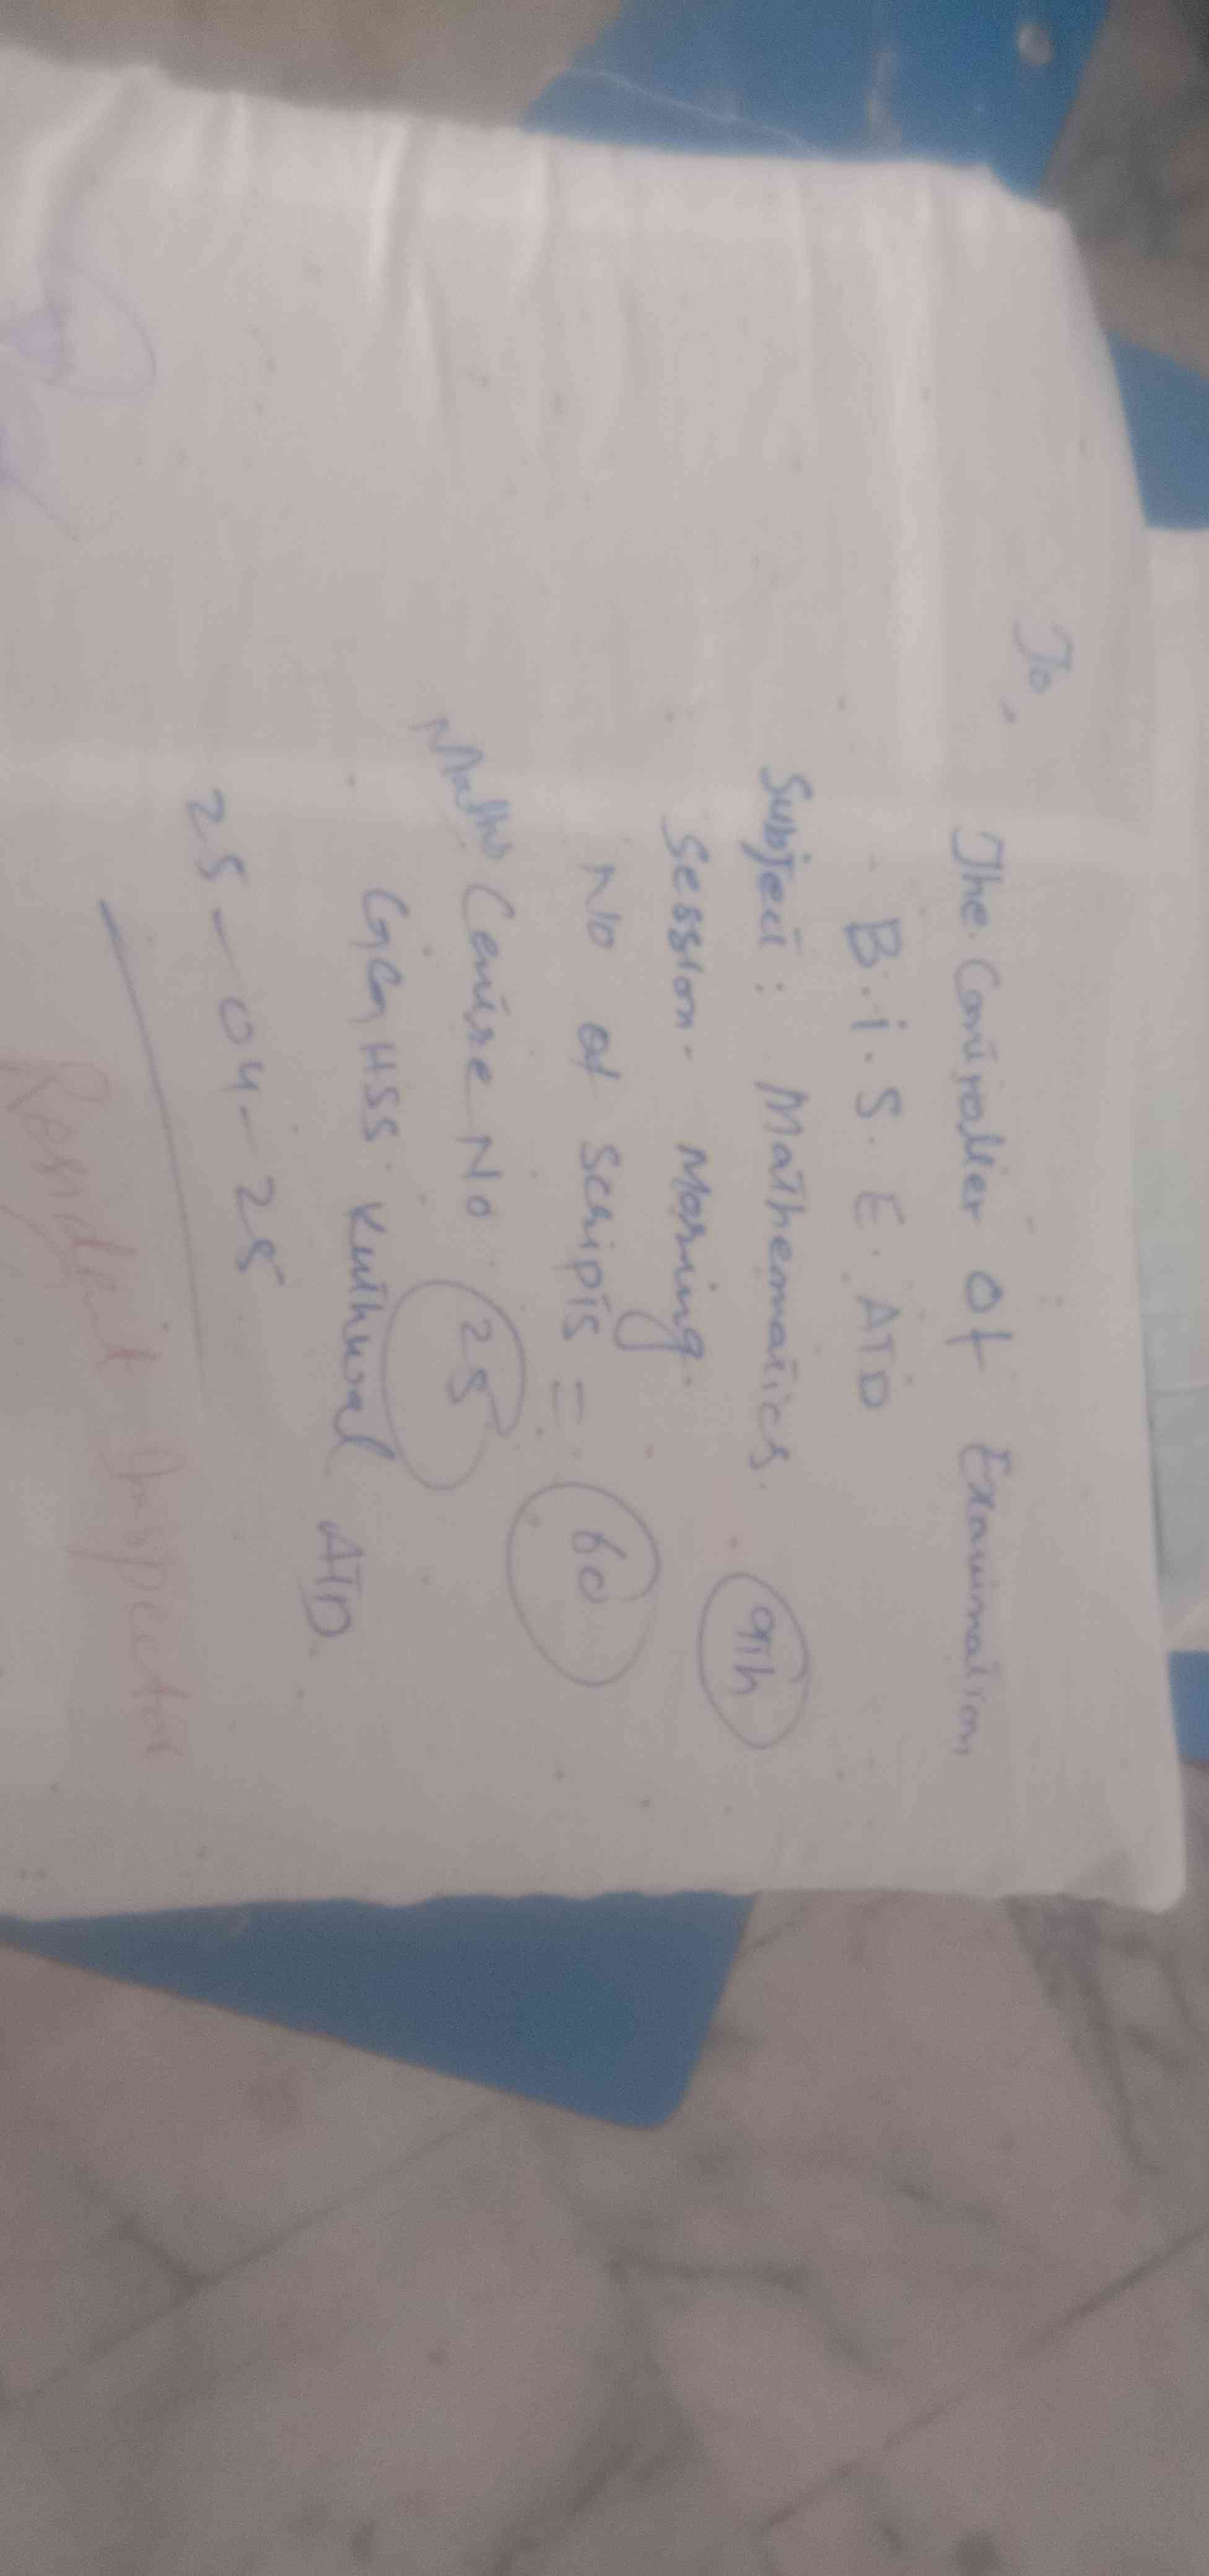 To,
The Controller Of Examination
B.I.S.E. ATD
Subject: Mathematics. 9th
Session. Morning.
No of Scripts = 60
Maths Centre No 25
GGHSS Kuthwal ATD.
25-04-25
Resident Inspector